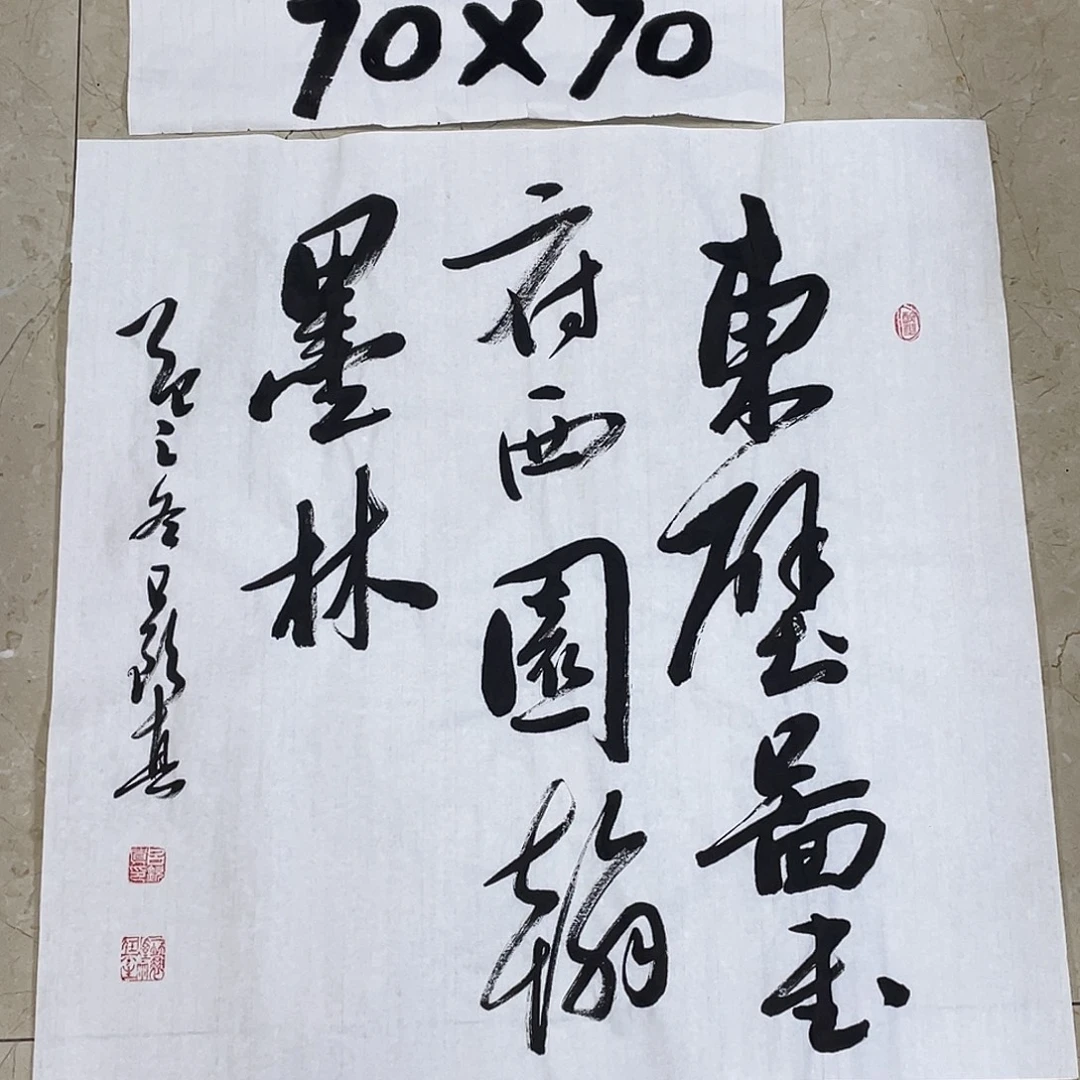 70×70
東壁圖書
府西園翰
墨林
之冬 真